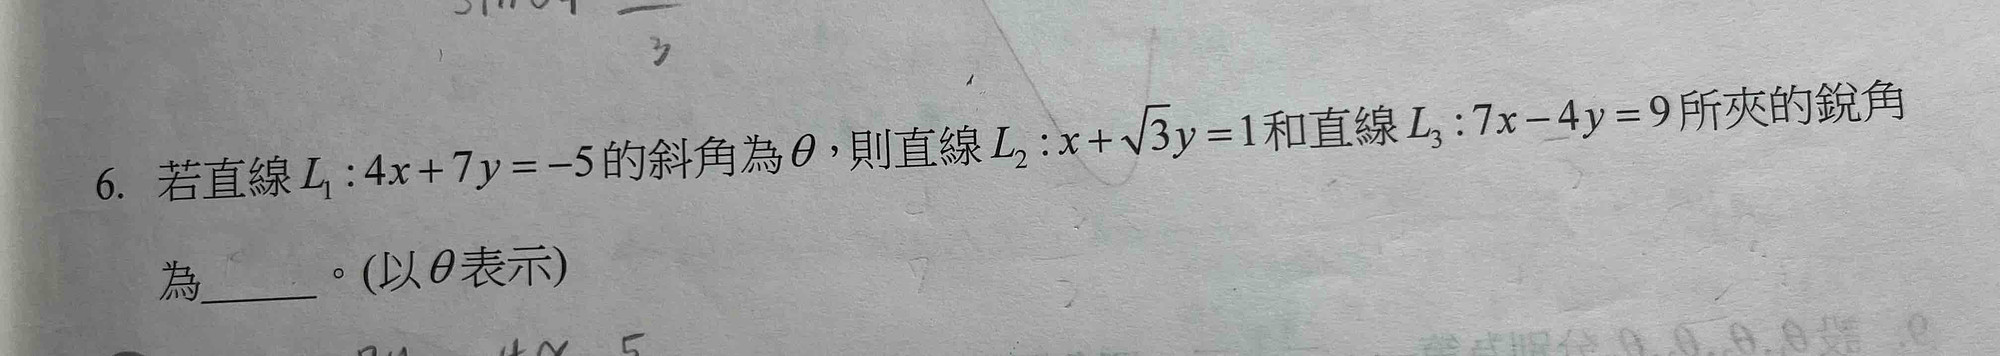 3
6. 若直線 L₁ : 4x + 7y = −5 的斜角為 θ，則直線 L₂ : x + √3y = 1 和直線 L₃ : 7x − 4y = 9 所夾的銳角
為_____。(以 θ 表示)